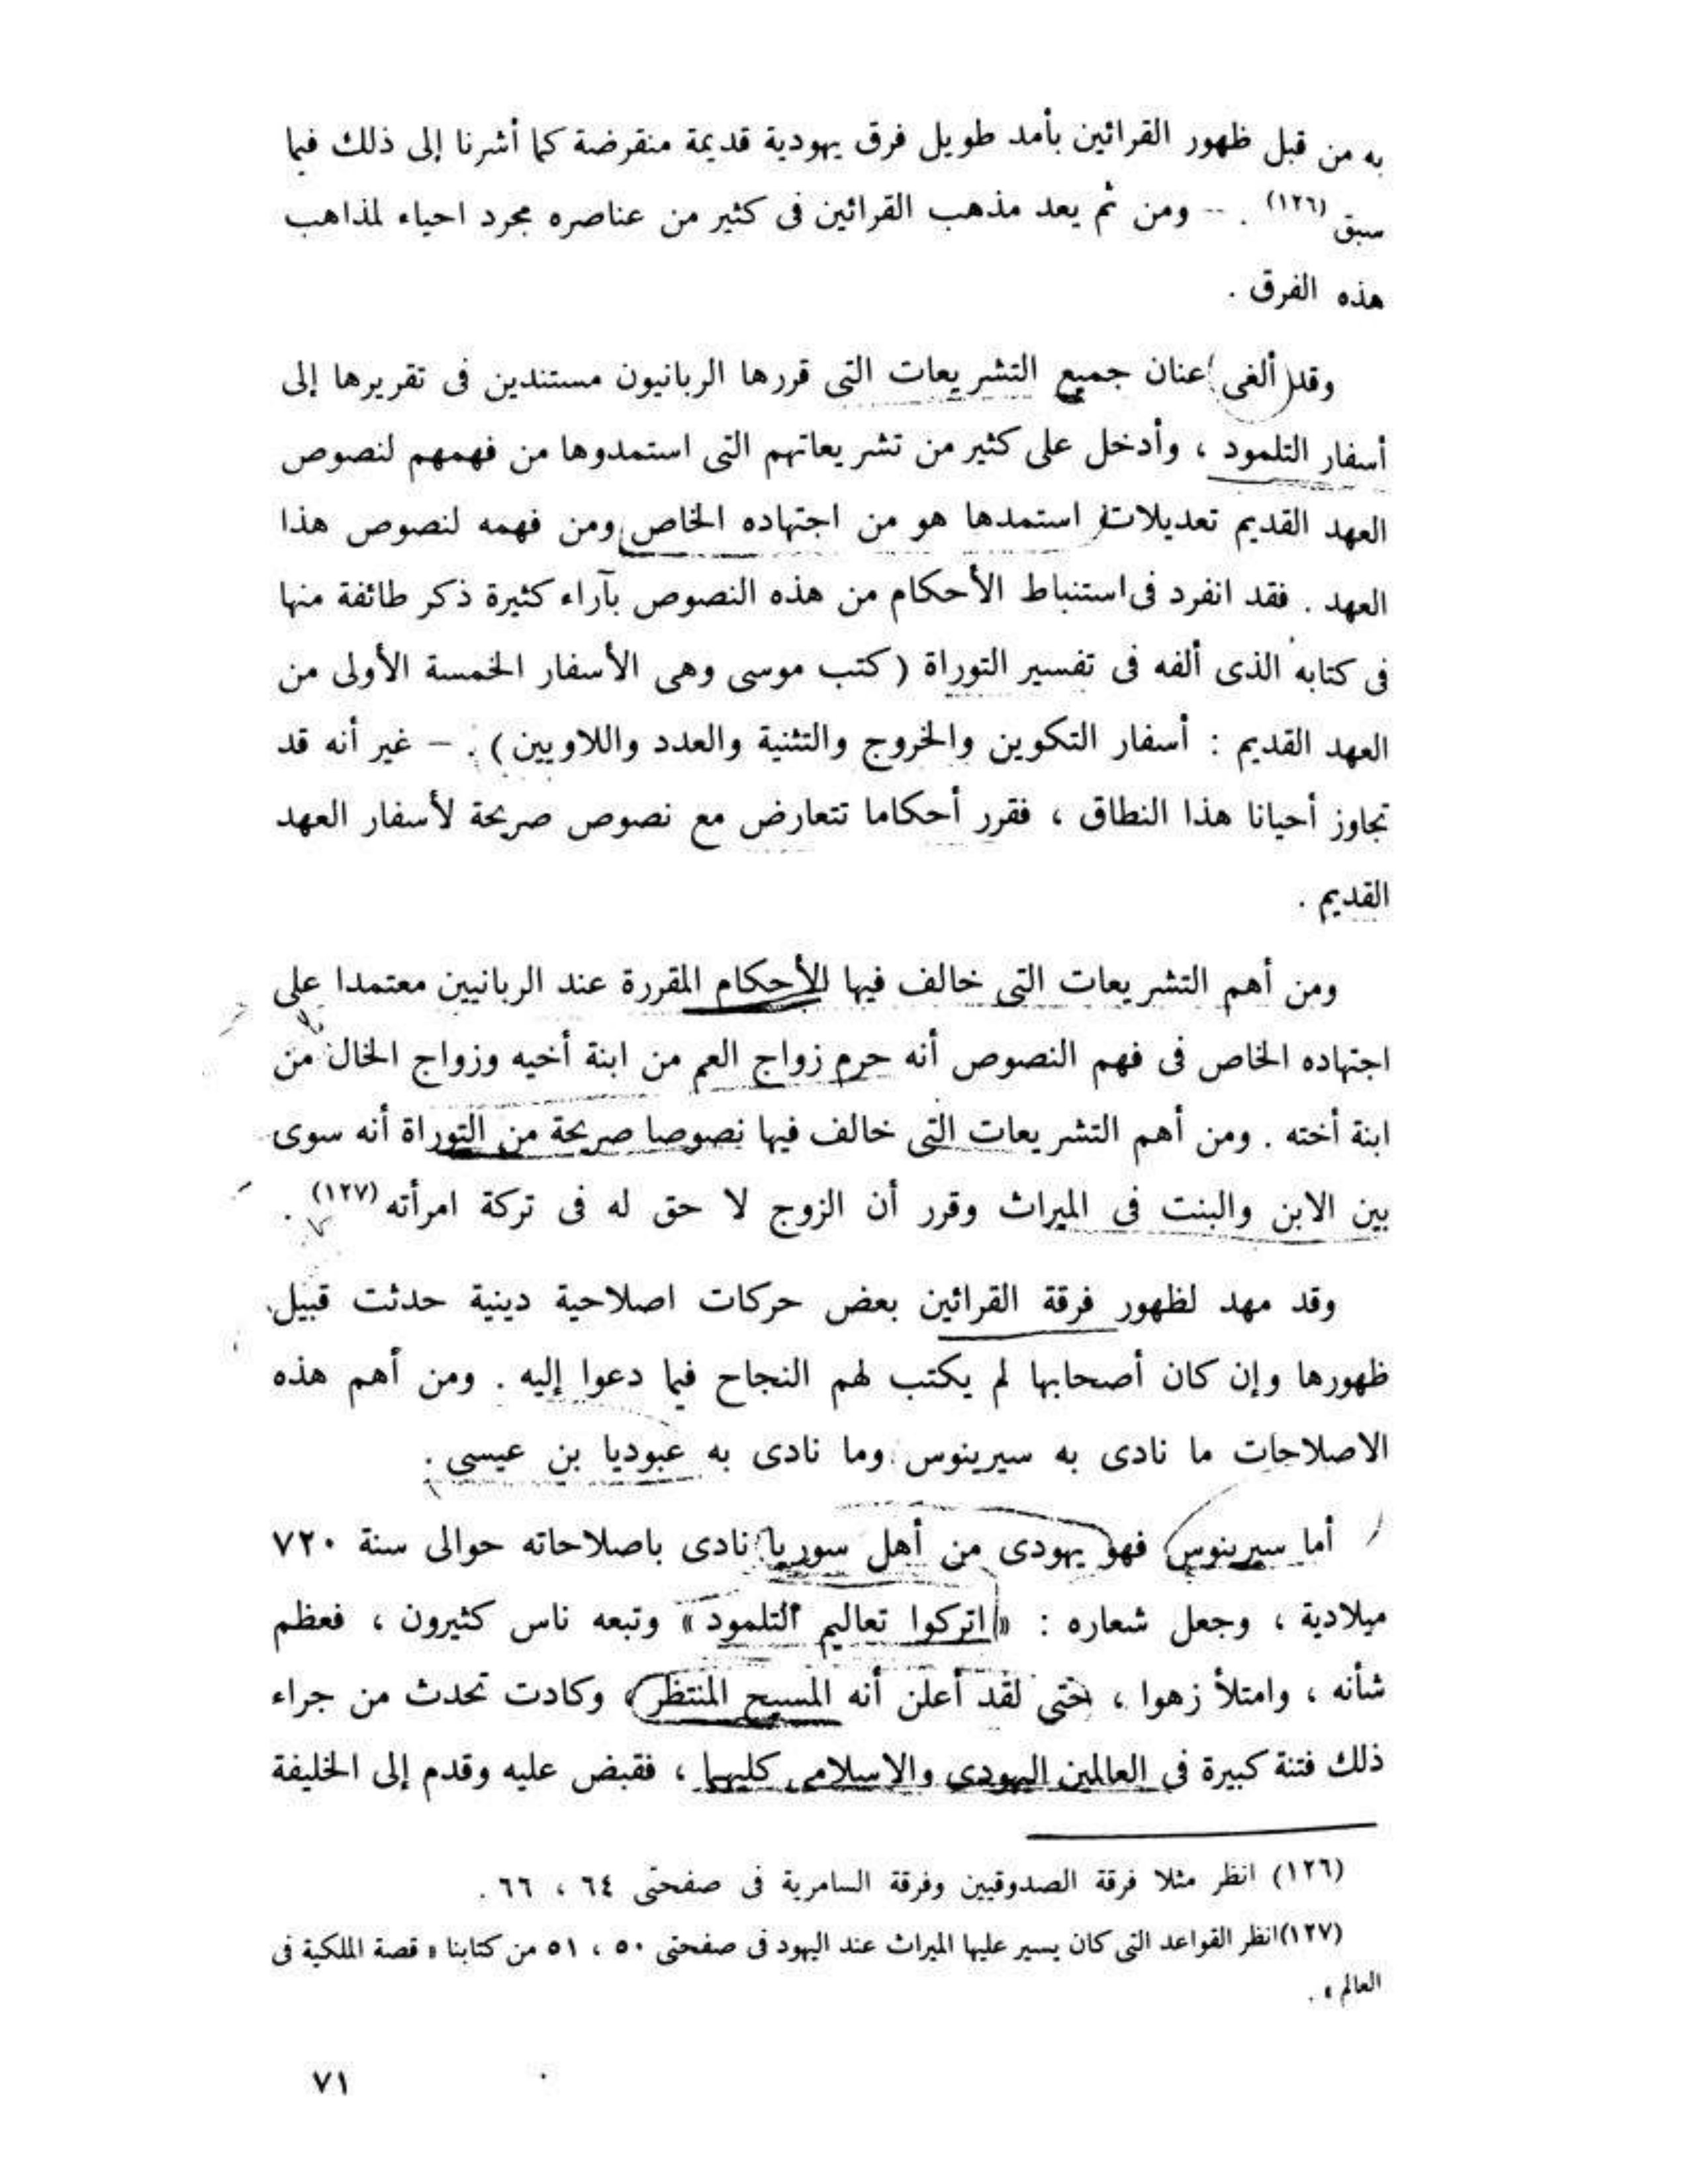 به من قبل ظهور القرائين بأمد طويل فرق يهودية قديمة منقرضة كما أشرنا إلى ذلك فيما
سبق (١٢٦) . -- ومن ثم يعد مذهب القرائين فى كثير من عناصره مجرد احياء لمذاهب
هذه الفرق .
وقد ألغى عنان جميع التشريعات التى قررها الربانيون مستندين فى تقريرها إلى
أسفار التلمود ، وأدخل على كثير من تشريعاتهم التى استمدوها من فهمهم لنصوص
العهد القديم تعديلات استمدها هو من اجتهاده الخاص ومن فهمه لنصوص هذا
العهد . فقد انفرد فى استنباط الأحكام من هذه النصوص بآراء كثيرة ذكر طائفة منها
فى كتابه الذى ألفه فى تفسير التوراة (كتب موسى وهى الأسفار الخمسة الأولى من
العهد القديم : أسفار التكوين والخروج والتثنية والعدد واللاويين) . – غير أنه قد
تجاوز أحيانا هذا النطاق ، فقرر أحكاما تتعارض مع نصوص صريحة لأسفار العهد
القديم .
ومن أهم التشريعات التى خالف فيها الأحكام المقررة عند الربانيين معتمدا على
اجتهاده الخاص فى فهم النصوص أنه حرم زواج العم من ابنة أخيه وزواج الخال من
ابنة أخته . ومن أهم التشريعات التى خالف فيها نصوصا صريحة من التوراة أنه سوى
بين الابن والبنت فى الميراث وقرر أن الزوج لا حق له فى تركة امرأته (١٢٧) .
وقد مهد لظهور فرقة القرائين بعض حركات اصلاحية دينية حدثت قبيل
ظهورها وإن كان أصحابها لم يكتب لهم النجاح فيما دعوا إليه . ومن أهم هذه
الاصلاحات ما نادى به سيرينوس وما نادى به عبوديا بن عيسى .
أما سيرينوس فهو يهودى من أهل سوريا نادى باصلاحاته حوالى سنة ٧٢٠
ميلادية ، وجعل شعاره : «اتركوا تعاليم التلمود» وتبعه ناس كثيرون ، فعظم
شأنه ، وامتلأ زهوا ، حتى لقد أعلن أنه المسيح المنتظر ، وكادت تحدث من جراء
ذلك فتنة كبيرة فى العالمين اليهودى والاسلامى كليهما ، فقبض عليه وقدم إلى الخليفة
(١٢٦) انظر مثلا فرقة الصدوقيين وفرقة السامرية فى صفحتى ٦٤ ، ٦٦ .
(١٢٧)انظر القواعد التى كان يسير عليها الميراث عند اليهود فى صفحتى ٥٠ ، ٥١ من كتابنا « قصة الملكية فى
العالم » .
٧١